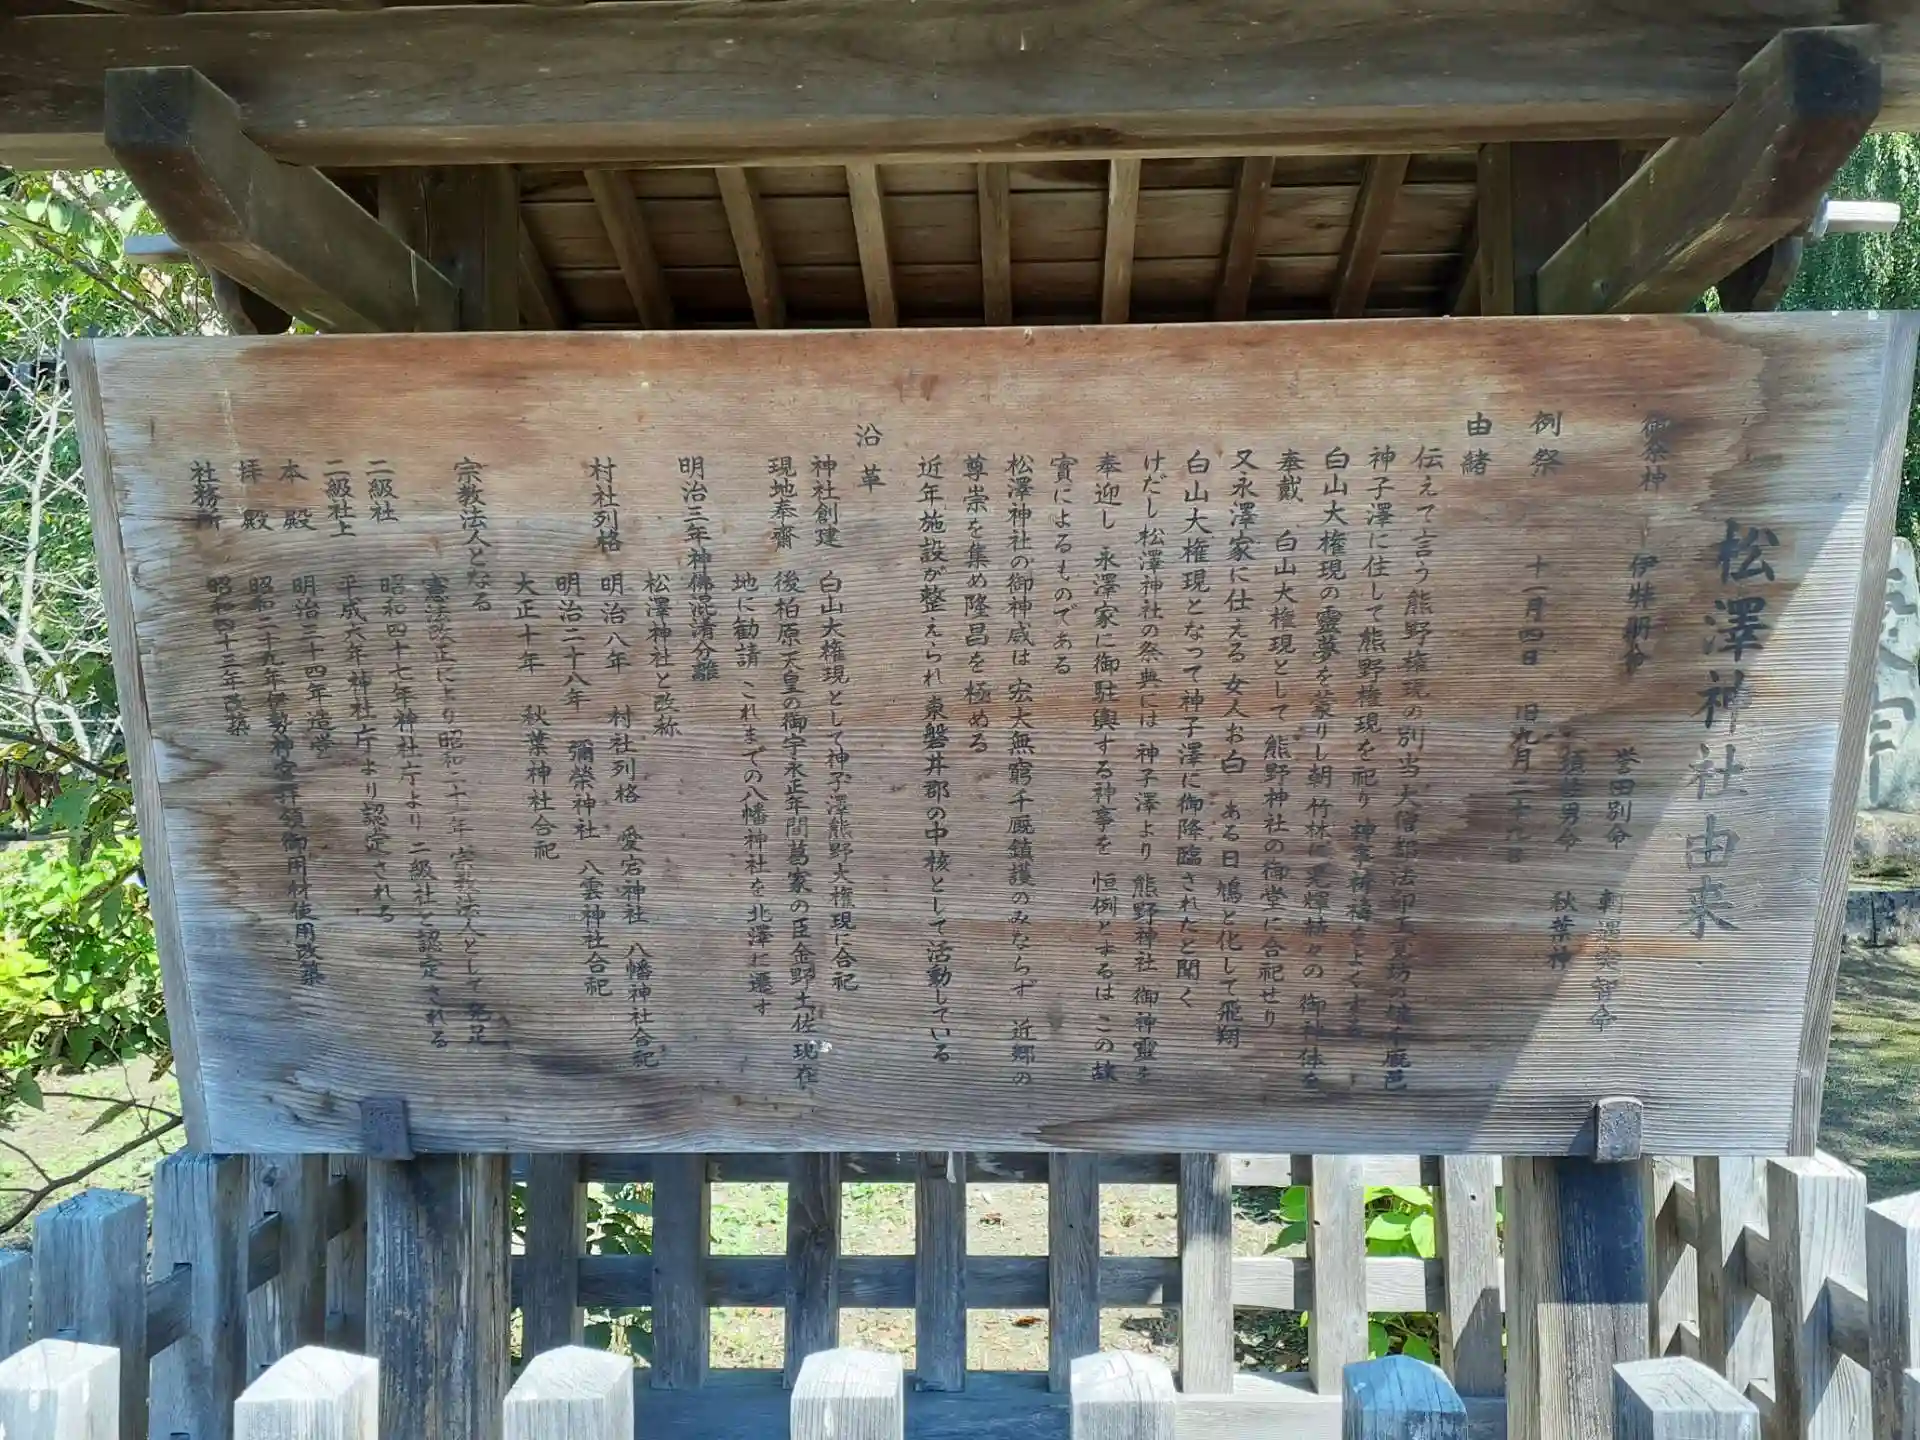 松澤神社由来
御祭神 伊弉册命 誉田別命 軻遇突智命
須佐男命 秋葉神
例祭 十一月四日 旧九月二十九日
由緒
伝えて言う熊野権現の別当大僧都法印 千厩邑
神子澤に住して熊野権現を祀り神事祈祷をよくする
白山大権現の靈夢を蒙りし朝竹林に光輝赫々の御神体を
奉戴 白山大権現として熊野神社の御堂に合祀せり
又永澤家に仕える女人お白 ある日鳩と化して飛翔
白山大権現となって神子澤に御降臨されたと聞く
けだし松澤神社の祭典には神子澤より熊野神社御神靈を
奉迎し永澤家に御駐輿する神事を恒例とするはこの故
實によるものである
松澤神社の御神威は宏大無窮千厩鎮護のみならず 近郷の
尊崇を集め隆昌を極める
近年施設が整えられ東磐井郡の中核として活動している
沿革
神社創建 白山大権現として神子澤熊野大権現に合祀
現地奉齋 後柏原天皇の御宇永正年間葛家の臣金野土佐現在
地に勧請 これまでの八幡神社を北澤に遷す
明治三年神佛混淆分離
松澤神社と改称
村社列格 明治八年 村社列格 愛宕神社 八幡神社合祀
明治二十八年 彌榮神社 八雲神社合祀
大正十年 秋葉神社合祀
宗教法人となる
憲法改正により昭和二十一年宗教法人として発足
二級社 昭和四十七年神社庁より二級社と認定される
二級社上 平成六年神社庁より認定される
本殿 明治三十四年造営
拝殿 昭和二十九年伊勢神宮拝領御用材使用改築
社務所 昭和四十三年改築